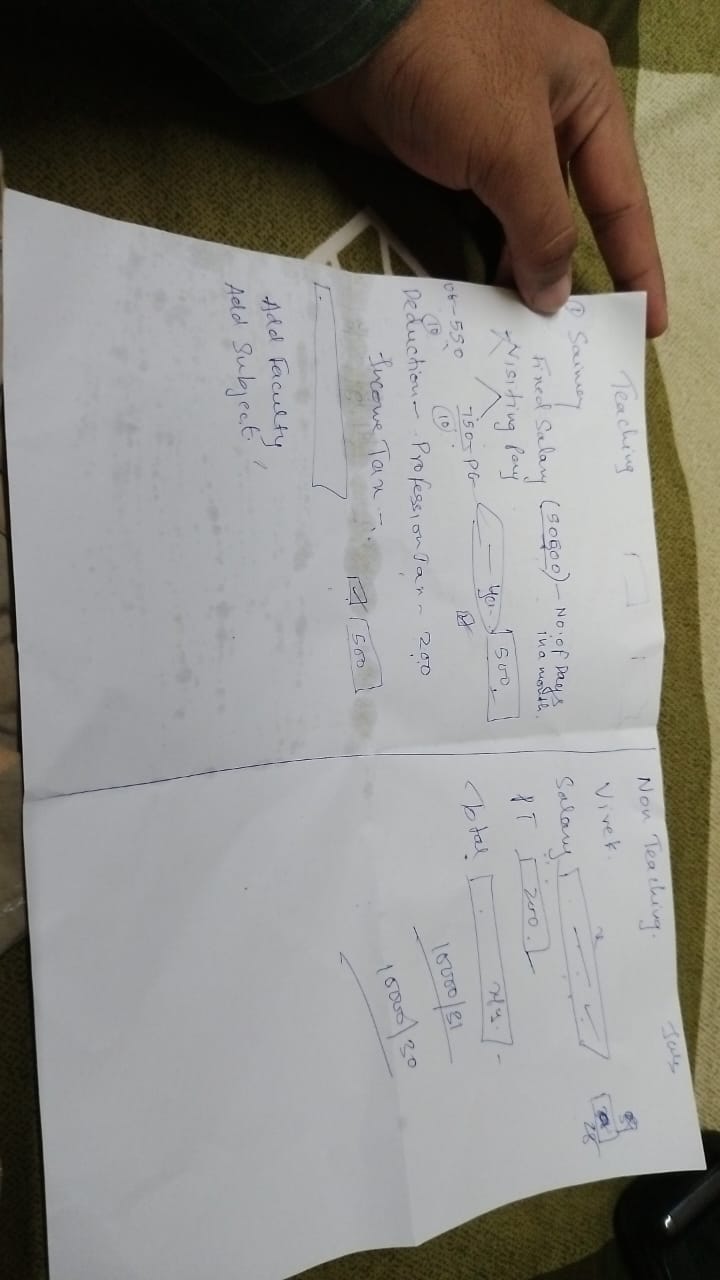 Teaching
① Saimey
Fixed Salary (50500) - No. of Days
in a month.
Visiting Pay
500.
UG - 550 750 - PG
10 10
Deduction - Profession Tax - 200
Income Tax -
500
Add Faculty
Add Subject
Non Teaching.
July
Vivek.
x
28
Salary
PT 200.
Total x/y.
10000/31
10000/30